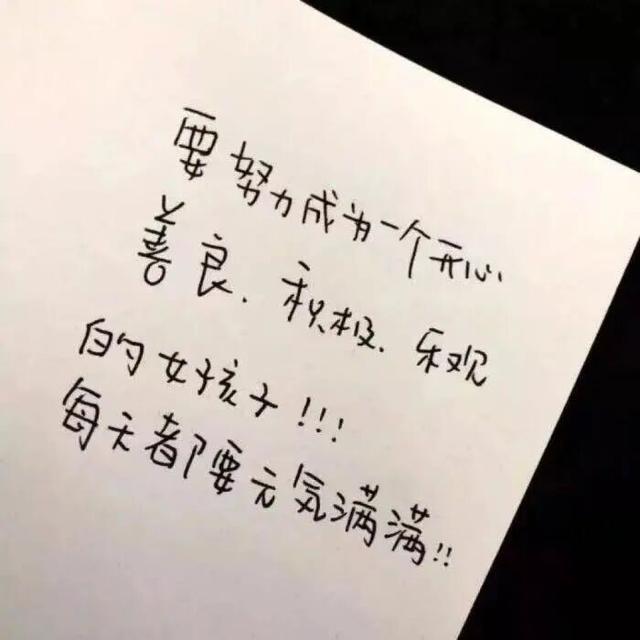 要努力成为一个开心、
善良、积极、乐观
的女孩子!!!
每天都要元気满满!!